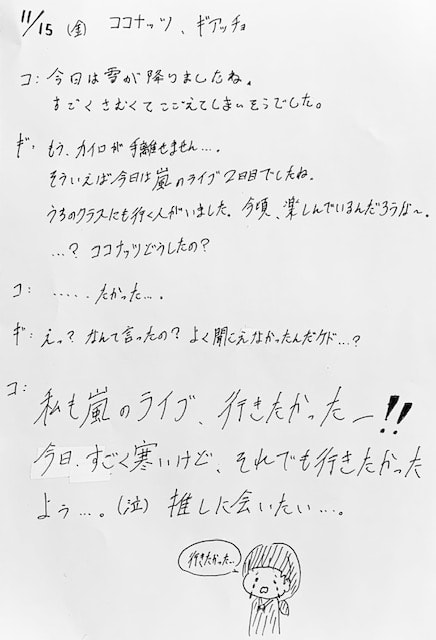 11/15 (金) ココナッツ、ギアッチョ
コ: 今日は雪が降りましたね。
すごくさむくてこごえてしまいそうでした。
ギ: もう、カイロが手離せません…。
そういえば今日は嵐のライブ2日目でしたね。
うちのクラスにも行く人がいました。今頃、楽しんでいるんだろうな〜。
…? ココナッツどうしたの?
コ: ‥‥‥たかった…。
ギ: えっ? なんて言ったの? よく聞こえなかったんだケド…?
コ:
私も嵐のライブ、行きたかったー!!
今日、すごく寒いけど、それでも行きたかった
よぅ…。(泣) 推しに会いたい…。
行きたかった…